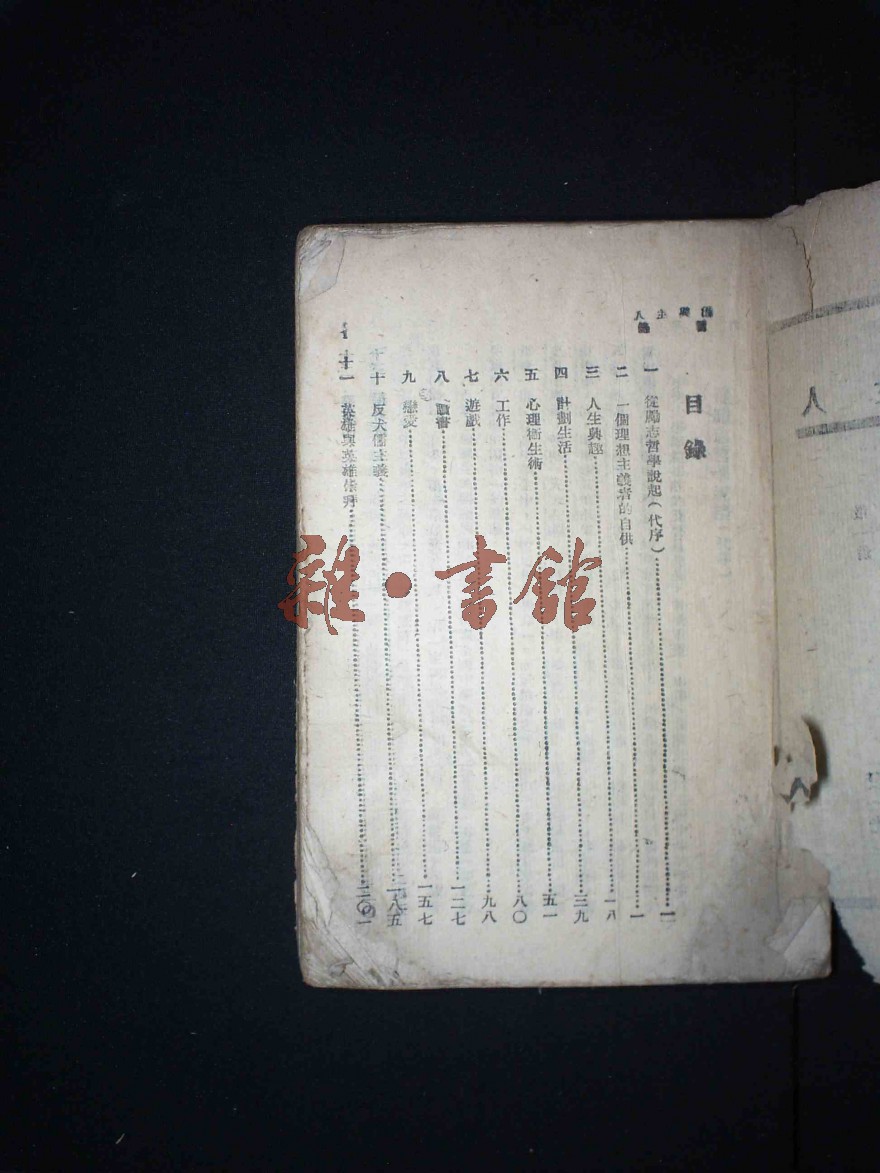 目錄
一 從勵志哲學說起(代序)……一
二 一個理想主義者的自供……一
三 人生興趣……一八
四 計劃生活……三九
五 心理衛生術……五一
六 工作……八〇
七 遊戲……九八
八 讀書……一二七
九 戀愛……一五七
十 反犬儒主義……一八五
十一 英雄與英雄崇拜……二〇一
人
雜·書館